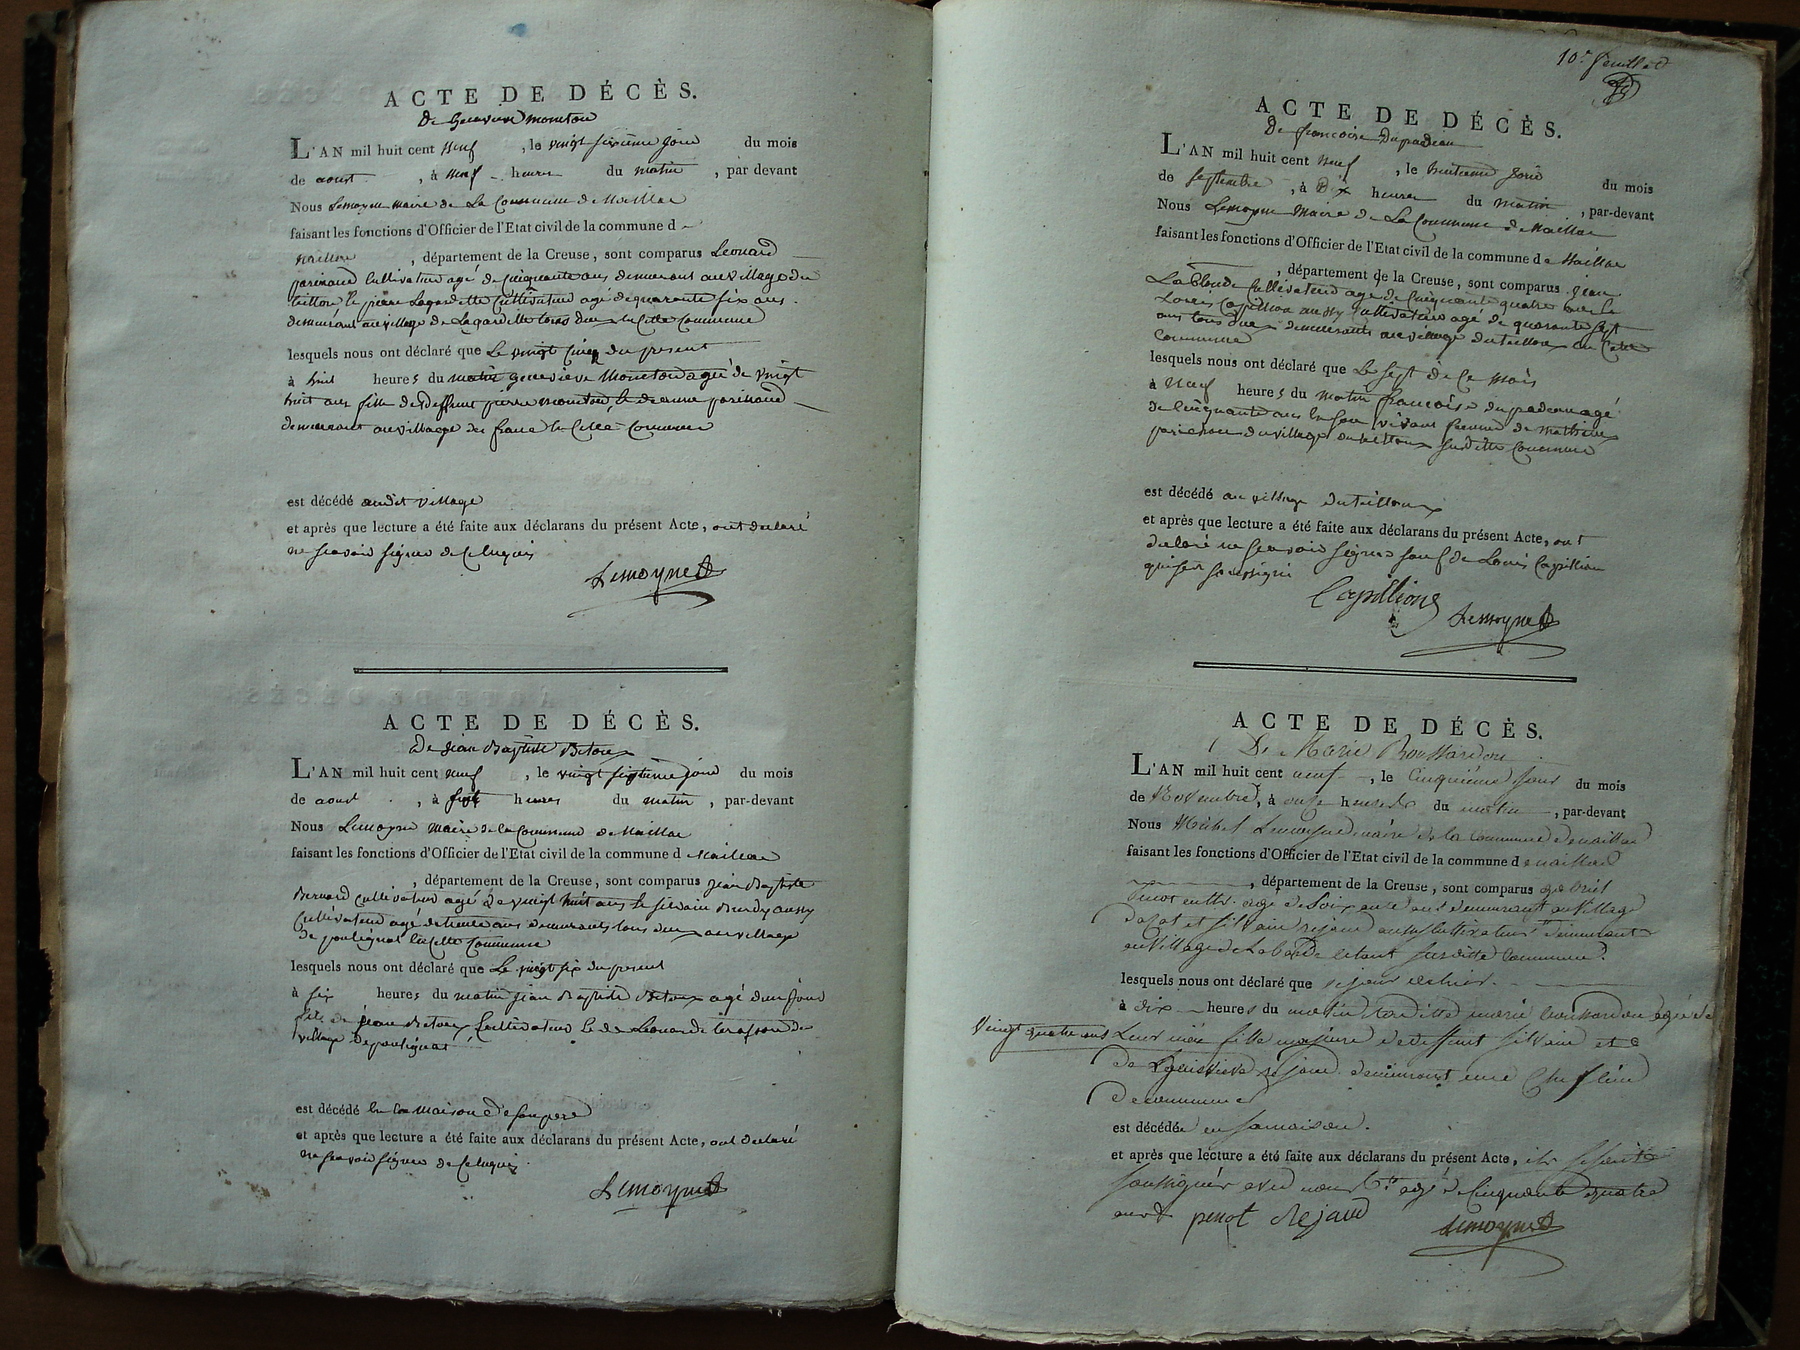 ACTE DE DÉCÈS.
De Genevieve moneton
L'AN mil huit cent neuf , le vingt sixieme jour du mois
de aoust , à neuf heures du matin , par devant
Nous Lemoyne maire de La Commune de Naillac
faisant les fonctions d'Officier de l'Etat civil de la commune d
Naillac , département de la Creuse, sont comparus Leonard
parinaud Cultivateur agé de cinquante ans demeurant au village du
pierre Lagardette Cultivateur agé de quarante six ans
demeurant au village de Lagardette tous deux en Cette Commune
lesquels nous ont déclaré que Le vingt Cinq du present
à huit heures du matin genevieve Moneton agée de vingt
huit ans fille de deffunt pierre moneton et de anne parinaud
demeurant au village en Cette Commune
est décédé audit village
et après que lecture a été faite aux déclarans du présent Acte, ont declaré
ne scavoir signer de Ce enquis
Lemoyne
ACTE DE DÉCÈS.
De Jean Baptiste Betoux
L'AN mil huit cent neuf , le vingt septieme jour du mois
de aoust , à sept heures du matin , par-devant
Nous Lemoyne maire de la Commune de Naillac
faisant les fonctions d'Officier de l'Etat civil de la commune d Naillac
, département de la Creuse, sont comparus Jean Baptiste
Bernard Cultivateur agé de vingt huit ans et silvain aussy
Cultivateur agé de trente ans demeurants tous deux au village
de poulignat en Cette Commune
lesquels nous ont déclaré que Le vingt six du present
à six heures du matin Jean Baptiste Betoux agé d'un jour
fils de Jean Betoux Cultivateur et de Leonarde
village de poulignat
est décédé en La maison de son pere
et après que lecture a été faite aux déclarans du présent Acte, ont declaré
ne scavoir signer de Ce enquis
Lemoyne
10e feuillet
ACTE DE DÉCÈS.
De francoise Dupradeau
L'AN mil huit cent neuf , le huitieme jour du mois
de septembre , à Dix heures du matin , par-devant
Nous Lemoyne Maire de La Commune de Naillac
faisant les fonctions d'Officier de l'Etat civil de la commune de Naillac
, département de la Creuse, sont comparus jean
Lablonde Cultivateur agé de Cinquante quatre ans et
Louis Capillion aussy Cultivateur agé de quarante sept
ans tous deux demeurants au village du teilloux en Cette
Commune
lesquels nous ont déclaré que Le sept de Ce mois
à Neuf heures du matin francoise dupradeau agé
de Cinquante ans en son vivant femme de mathieu
du village du teilloux susditte Commune
est décédé au village du teilloux
et après que lecture a été faite aux déclarans du présent Acte, ont
declaré ne scavoir signer sauf de Louis Capillion
qui s'est soussigné
Capillion
Lemoyne
ACTE DE DÉCÈS.
De Marie Boussardon
L'AN mil huit cent neuf , le Cinquieme jour du mois
de Novembre, à onze heures du matin , par-devant
Nous Michel Lemoyne maire de la commune de naillac
faisant les fonctions d'Officier de l'Etat civil de la commune de naillac
, département de la Creuse, sont comparus gabriel
penot agé de soixante ans demeurant au village
et silvain rejaud aussy cultivateur demeurant
au Village de Laborde et tant susditte Commune.
lesquels nous ont déclaré que
à dix heures du matin marie boussardon agée de
vingt quatre ans Leur niéce fille majeure de deffunt silvain et
de rejaud demeurant au Chef lieu
de commune
est décédée en sa maison.
et après que lecture a été faite aux déclarans du présent Acte, ils se sont
soussignés avec nous agé de Cinquante quatre
ans penot Rejaud Lemoyne